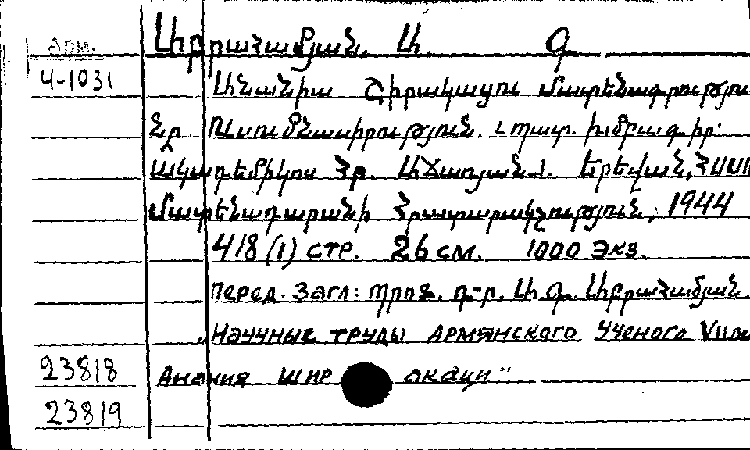 Арм.
4-1031
Աբրահամյան, Ա. Գ.
Անանիա Շիրակացու մատենագրությու
նը Ուսումնասիրություն. պատ. խմբագիր:
ակադեմիկոս Հր. Աճառյան. Երեվան, ՀՍՍՌ
Մատենադարանի Հրատարակչություն, 1944
418 (1) стр. 26 см. 1000 экз.
Перед. загл: Պրոֆ. դ-ր. Ա. Գ. Աբրահամյան
"Научные труды армянского ученого VII
23818 Анания Шир акаци"
23819